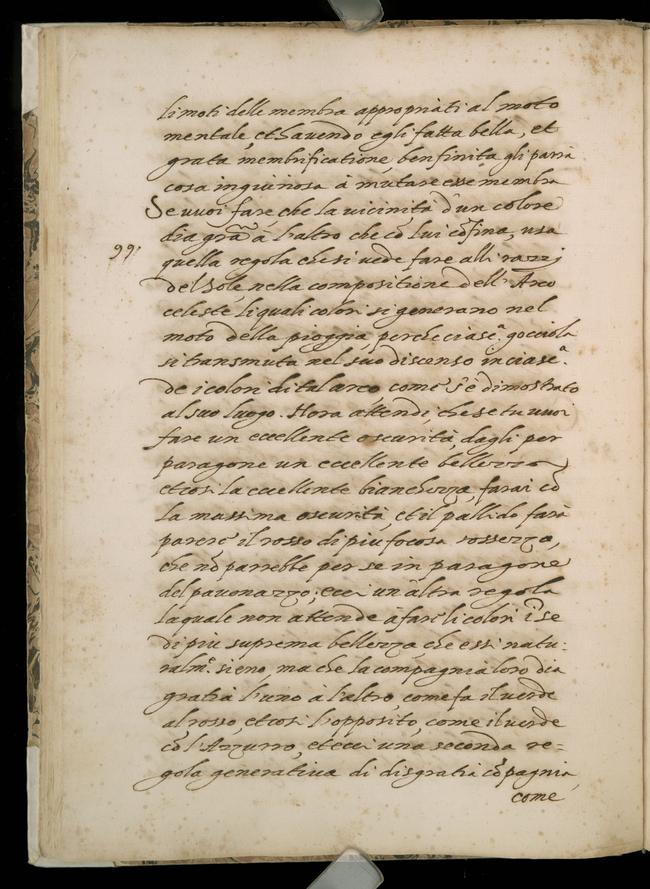 li moti delle membra appropriati al moto
mentale, et havendo egli fatta bella, et
grata membrificatione, ben finita gli parrà
cosa ingiuriosa à mutare esse membra
Se vuoi fare che la vicinità d'un colore
99. dia gra.ª à l'altro che cō lui cōfina, usa
quella regola che si vede fare alli razzi
del Sole nella compositione dell'Arco
celeste, li quali colori si generano nel
moto della pioggia, perche ciasc.ª gocciola
si transmuta nel suo discenso in ciasc.ª
de i colori di tal arco come s'è dimostrato
al suo luogo. Hora attendi, che se tu vuoi
fare un eccellente oscurità, dagli per
paragone un eccellente bellezza
et così la eccellente bianchezza farai cō
la massima oscurità, et il pallido farà
parere il rosso di più focosa rossezza,
che nō parrebbe per se in paragone
del pavonazzo; ecci un'altra regola
la quale non attende à fare li colori ī se
di più suprema bellezza che essi natu:
ralm.e sieno, ma che la compagnia loro dia
gratia l'uno à l'altro, come fa il verde
al rosso, et così l'opposito, come il verde
cō l'Azzurro, et ecci una seconda re=
gola generativa di disgratia cōpagnia,
come